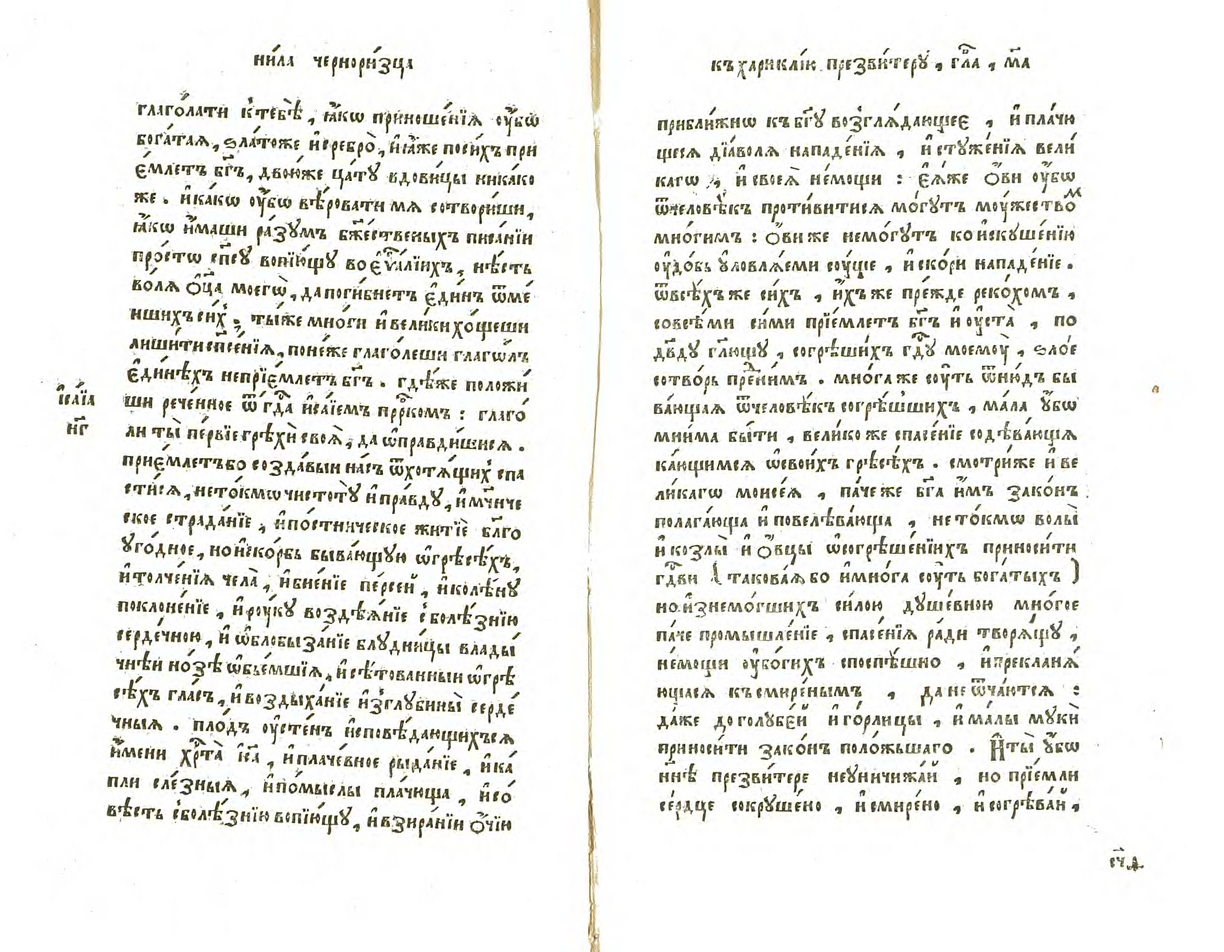 ни́ла черори́зца
глаго́лати к̾тебѣ̀, ꙗ҆́кѡ приноше́нїѧ ᲂу҆́бѡ
бога́таѧ, ѕла́тоже и҆сребро̀, и҆ꙗ҆́же поси́хъ при
е҆́млетъ бг҃ъ, двою́же ца́ту вдови́цы ника́ко
же. и҆ка́кѡ ᲂу҆́бѡ вѣ́ровати мѧ сотвори́ши,
ꙗ҆́кѡ и҆́маши ра́зумъ бж҃е́ственыхъ писа́нїи
про́стѡ сп҃су вопїю́щу во є҆ѵⷢ҇а́лїихъ, нѣ́сть
во́лѧ ѻ҆ц҃а̀ моегѡ̀, дапоги́бнетъ е҆ди́нъ ѿме́
ншихъ си́хъ. ты́же мно́ги и҆вели́ки хо́щеши
лиши́ти сп҃се́нїѧ, поне́же глаго́леши глаго́лъ
е҆ди́нѣхъ непрїе́млетъ бг҃ъ. гдѣ́же положи́
ши рече́нное ѿ гдⷭ҇а и҆са́їемъ прⷪ҇ркомъ: глаго́
ли ты̀ пе́рвїе грѣхѝ своѧ̀, да ѡ҆правди́шисѧ.
прие́млетъбо созда́выи на́съ ѿхотѧ́щихъ спа
сти́сѧ, нето́кмѡ чистоту̀ и҆пра́вду, и҆мч҃ниче
ское страда́нїе, и҆по́стническое житїѐ бл҃го
уго́дное, но и҆ско́рбь быва́ющую ѡ҆грѣсѣ́хъ,
и҆толче́нїѧ чела̀, и҆бїе́нїе пе́рсей, и҆колѣ́ну
поклоне́нїе, и҆роу́ку воздѣѧ́нїе с̾болѣ́знїю
серде́чною, и҆ ѡ҆блобыза́нїе блудни́цы влады́
чнѣи но́зѣ ѡ҆бъе́мшїѧ, и҆сѣ́тованныи ѡ҆грѣ
сѣ́хъ гла́съ, и҆воздыха́нїе и҆зглубины̀ серде́
чныѧ. пло́дъ ᲂу҆сте́нъ и҆сповѣ́дающихъсѧ
и҆́мени хрⷭ҇та̀ і҆с҃а, и҆плаче́вное рыда́нїе, и҆ка́
пли сле́зныѧ, и҆по́мыслы пла́чища, и҆со́
вѣсть с̾болѣ́знїю вопїю́щу, и҆взира́нїи ѻ҆́чїю
і҆са́їа
н҃г
къ харикли́ю презви́теру, гл҃а, м҃а
прибли́жнѡ къ бг҃у возглѧ́дающее, и҆ пла́чю
щесѧ дїа́волѧ нападе́нїѧ, и҆ стуже́нїѧ вели́
кагѡ, и҆ своеѧ̀ не́мощи: е҆ѧ́же ѻ҆́ви ᲂу҆́бѡ
ѿчеловѣ́къ проти́витисѧ мо́гутъ моу́жествоⷨ
мно́гимъ: ѻ҆́ви же немо́гутъ ко и҆скуше́нїю
ᲂу҆до́бь уловлѧ́еми соу́ще, и҆ ско́ри нападе́нїе.
ѿвсѣ́хъ же си́хъ, и҆́хъ же пре́жде реко́хомъ,
совсѣ́ми си́ми прїе́млетъ бг҃ъ и҆ ᲂу҆ста̀, по
дв҃ду гл҃ющу, согрѣ́шихъ гдⷭ҇у моемоу̀, ѕло́е
сотво́рь пре́дни́мъ. мно́га же соу́ть ѿню́дъ бы
ва́ющаѧ ѿчеловѣ́къ согрѣ́шшихъ, ма́ла ᲂу҆́бѡ
мни́ма бы́ти, вели́ко же спасе́нїе содѣва́ющїѧ
ка́ющимсѧ ѡ҆свои́хъ грѣсѣ́хъ. смотри́же и҆ ве
ли́кагѡ моисе́ѧ, па́че же бг҃а и҆́мъ зако́нъ
полага́юща и҆ повелѣва́юща, не то́кмѡ волы̀
и҆ козлы̀ и҆ ѻ҆́вцы ѡ҆согрѣше́нїихъ приноси́ти
гдⷭ҇ви ( такова́ѧ бо и҆ мно́га соу́ть бога́тыхъ )
но и҆знемо́гшихъ си́лою душе́вною мно́гое
па́че промышле́нїе, спасе́нїѧ ра́ди творѧ́щу,
не́мощи ᲂу҆бо́гихъ споспѣ́шно, и҆ преклонѧ́
ющасѧ къ смире́нымъ, да не ѿча́ютсѧ:
да́же до голубе́й и҆ го́рлицы, и҆ ма́лы мукѝ
приноси́ти зако́нъ поло́жьшаго. И҆ ты̀ ᲂу҆́бѡ
нн҃ѣ презви́тере неуничижа́й, но прїе́мли
се́рдце сокруше́но, и҆ смире́но, и҆ согрѣва́й,